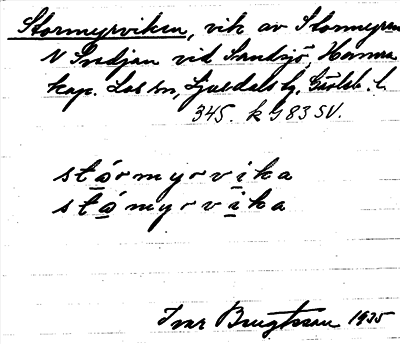 Stormyrviken, vik av Stormyren
N Svedjan vid Sandsjö, Hamra
kap. Los sn, Ljusdals tg, Gävleb. l.
345. k G 83 SV.
stårmyrvika
ståmyrvika
Ivar Bengtsson 1935